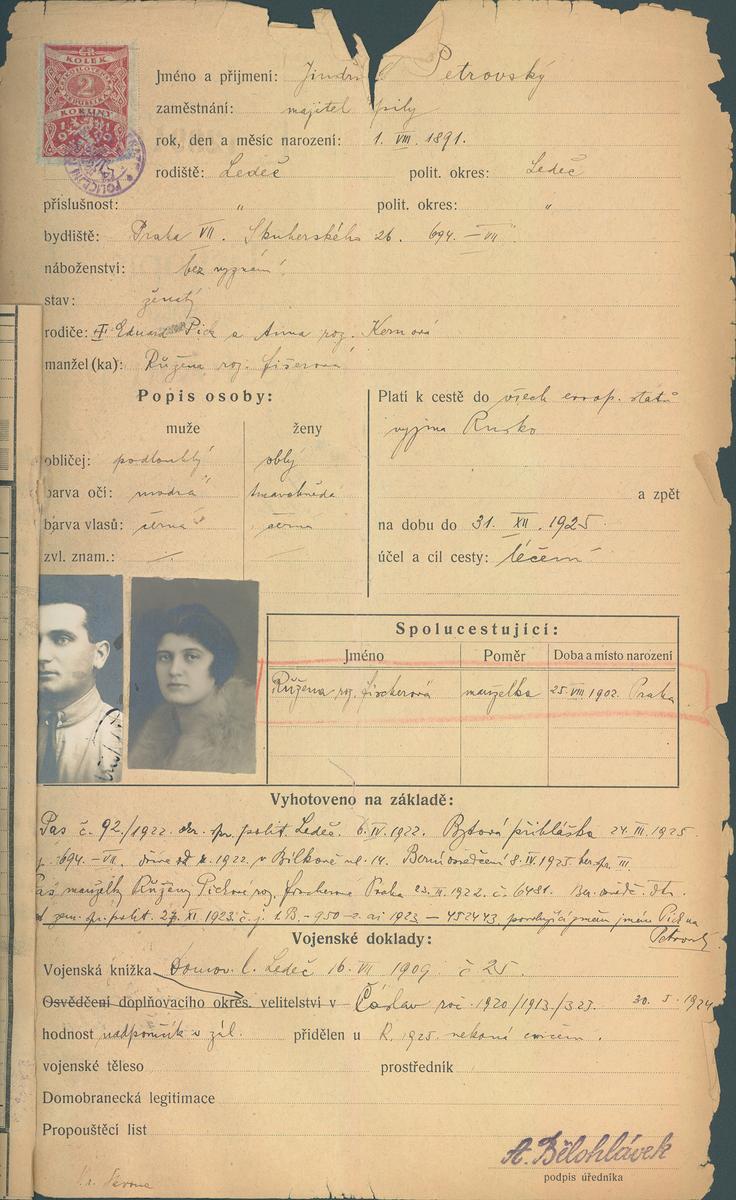 KOLEK
2
KORUNY
Jméno a příjmení: Jindř Petrovský
zaměstnání: majitel pily
rok, den a měsíc narození: 1. VIII. 1891.
rodiště: Ledeč polit. okres: Ledeč
příslušnost: " polit. okres: "
bydliště: Praha VII. Skuherského 26. 694. – VII
náboženství: bez vyznání
stav: ženatý
rodiče: Eduard Pick a Anna roz. Kernová
manžel (ka): Růžena roz. Fišerová
Popis osoby:
muže ženy
obličej: podlouhlý oblý
barva očí: modrá tmavohnědá
barva vlasů: černá černá
zvl. znam.:
Platí k cestě do všech evrop. států
vyjma Rusko
a zpět
na dobu do 31. XII. 1925.
účel a cíl cesty: léčení
Spolucestující:
Jméno Poměr Doba a místo narození
Růžena roz. Fischerová manželka 25. VIII. 1902. Praha
Vyhotoveno na základě:
Pas č. 92/1922. okr. spr. polit. Ledeč. 6. IV. 1922. Bytová přihláška 24. III. 1925
694. – VII, 1922. v Bilkově ul. 14. Berní osvědčení 8. IV. 1925 ber. spr. III.
manželky Růženy Pickové roz. Fischerové Praha 23. II. 1922. č. 6481.
zem. spr. polit. 27. XI. 1923. č. j. 1. B. – 950 – 1923 – 452443. povolující změnu jmén Pick na
Petrovský
Vojenské doklady:
Vojenská knížka Domov. l. Ledeč 16. VII 1909 č 25.
Osvědčení doplňovacího okres. velitelství v Čáslav roč. 1920/1913/323. 30. 5. 1924
hodnost nadporučík v zál. přidělen u R. 1925. nekoná cvičení.
vojenské těleso prostředník
Domobranecká legitimace
Propouštěcí list
A. Bělohlávek
podpis úředníka